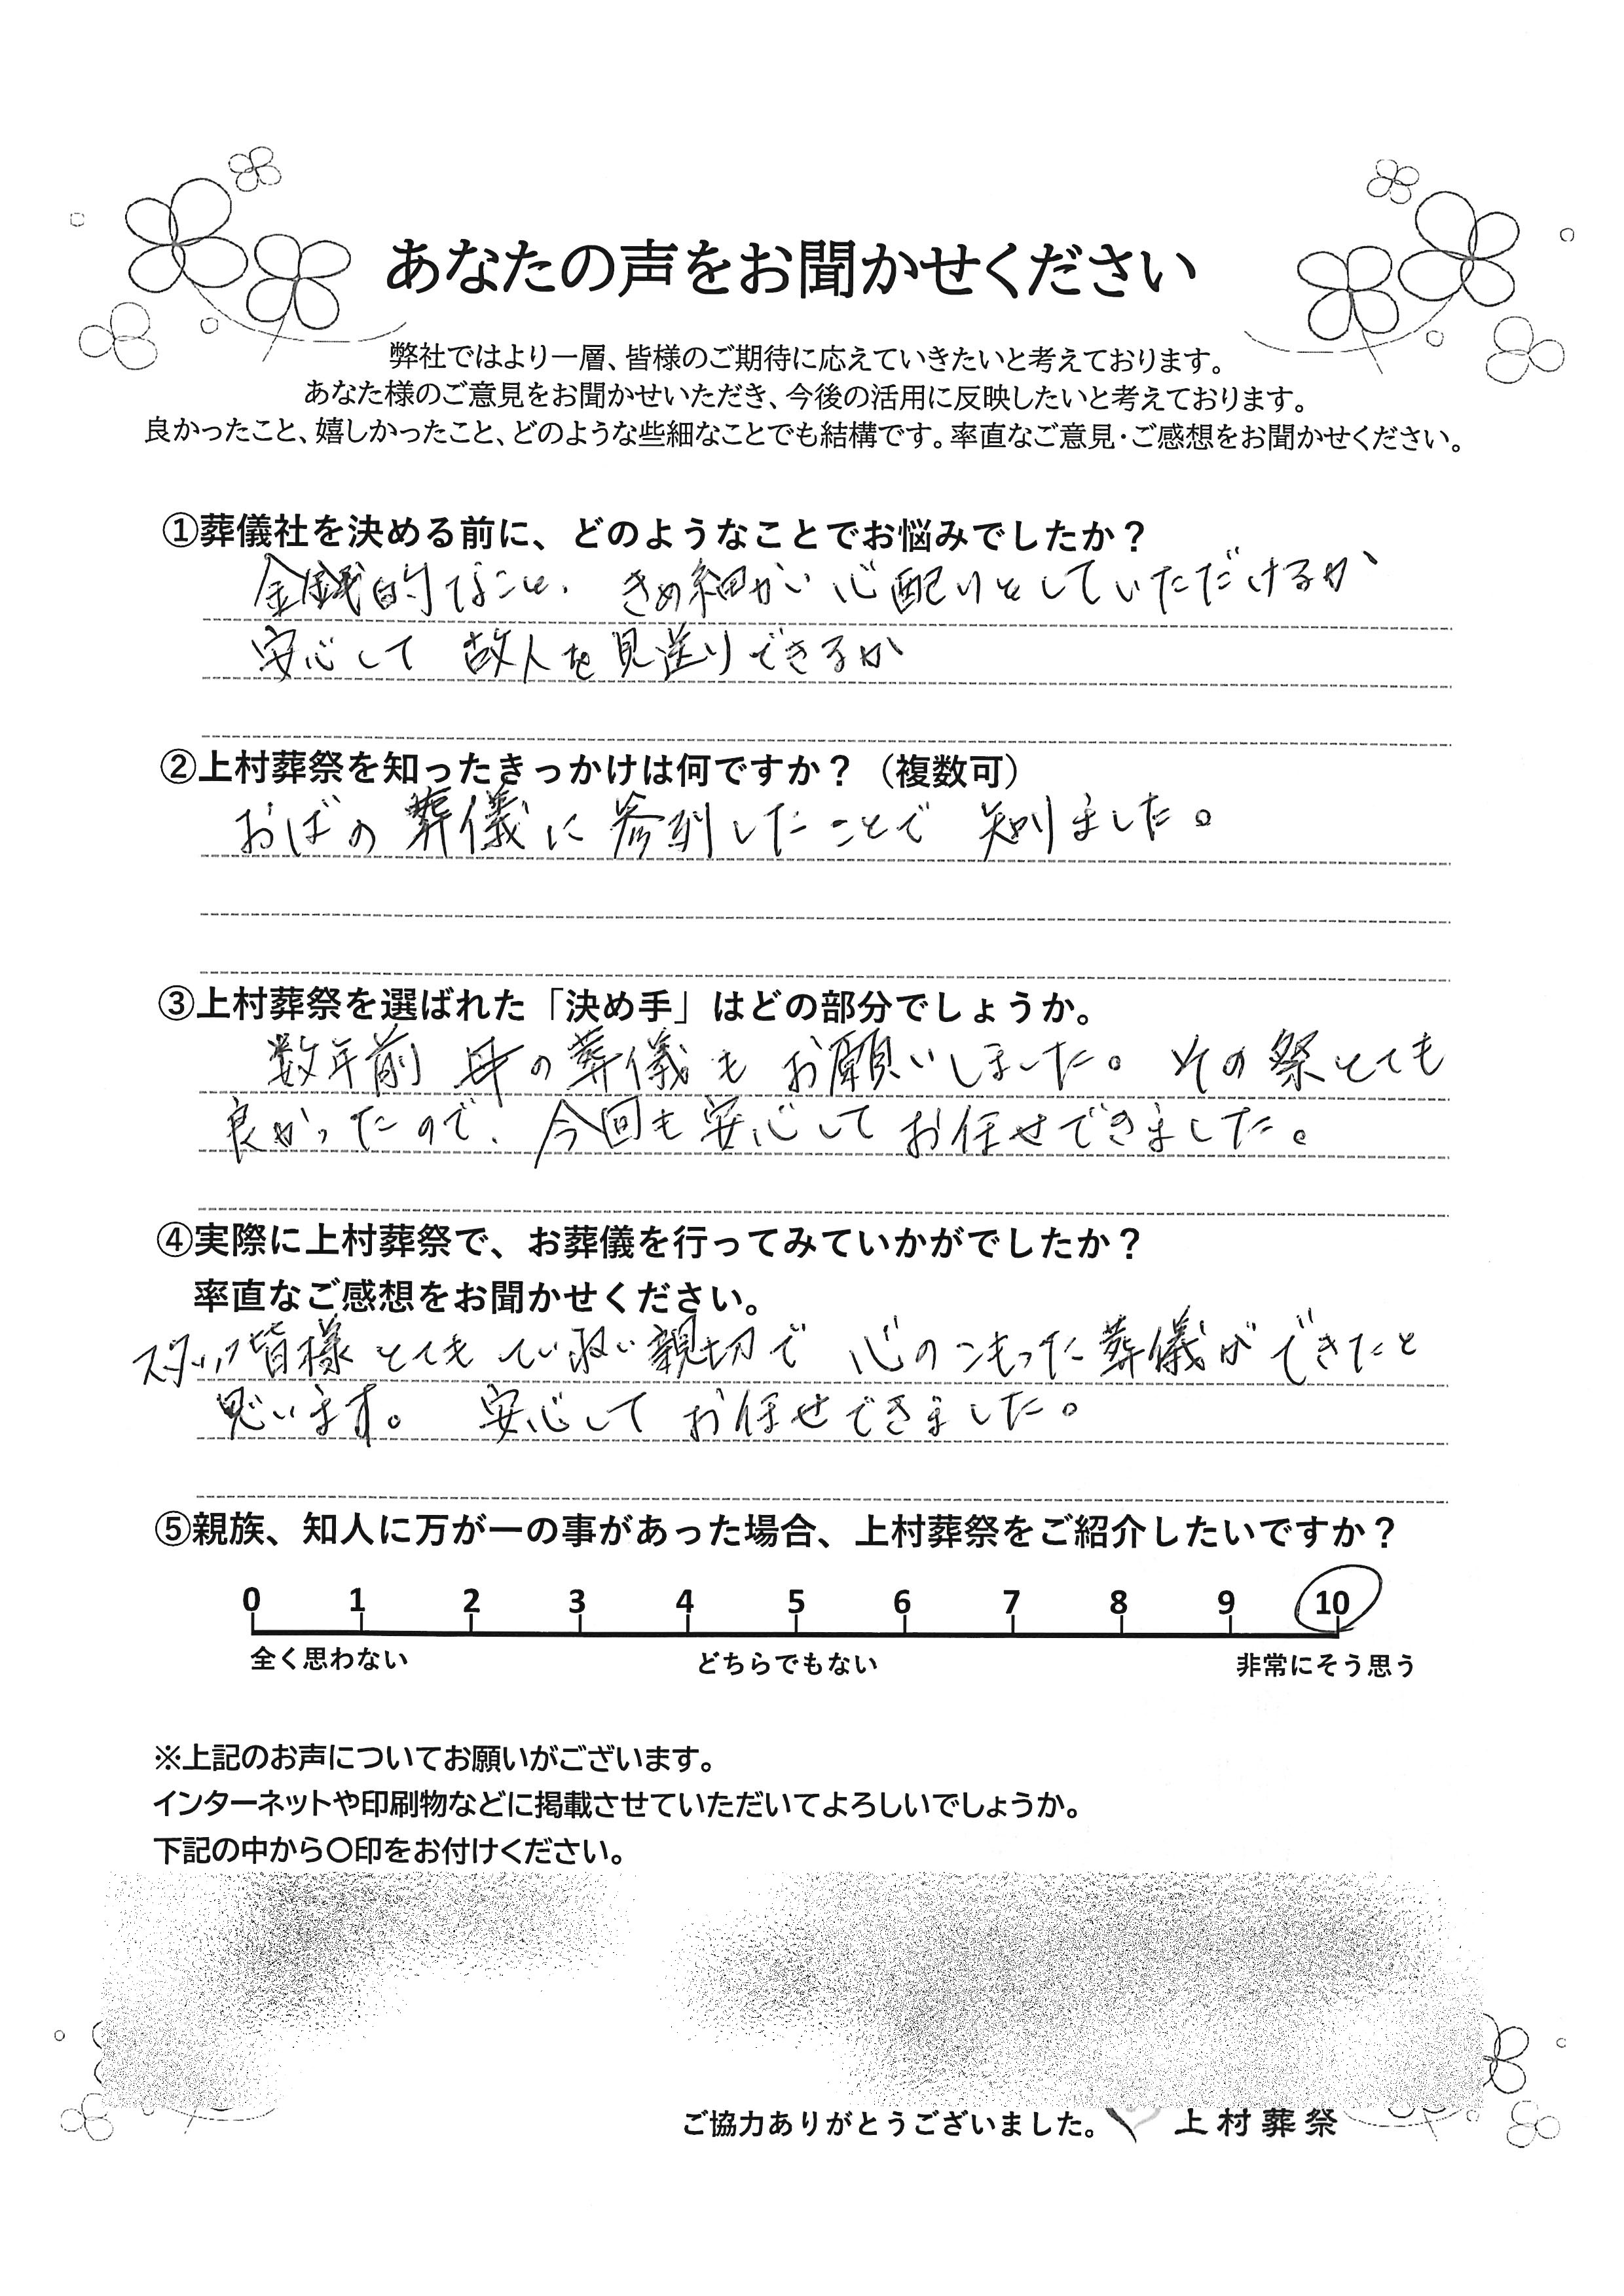 あなたの声をお聞かせください
弊社ではより一層、皆様のご期待に応えていきたいと考えております。
あなた様のご意見をお聞かせいただき、今後の活用に反映したいと考えております。
良かったこと、嬉しかったこと、どのような些細なことでも結構です。率直なご意見・ご感想をお聞かせください。
①葬儀社を決める前に、どのようなことでお悩みでしたか？
金銭的なこと、きめ細かい心配りをしていただけるか、
安心して 故人を見送りできるか
②上村葬祭を知ったきっかけは何ですか？（複数可）
おばの葬儀に参列したことで 知りました。
③上村葬祭を選ばれた「決め手」はどの部分でしょうか。
数年前 母の葬儀も お願いしました。その祭とても
良かったので、今回も安心して お任せできました。
④実際に上村葬祭で、お葬儀を行ってみていかがでしたか？
率直なご感想をお聞かせください。
スタッフ皆様とても てい ねい親切で 心のこもった葬儀ができたと
思います。 安心して お任せできました。
⑤親族、知人に万が一の事があった場合、上村葬祭をご紹介したいですか？
0 1 2 3 4 5 6 7 8 9 10
全く思わない どちらでもない 非常にそう思う
※上記のお声についてお願いがございます。
インターネットや印刷物などに掲載させていただいてよろしいでしょうか。
下記の中から〇印をお付けください。
ご協力ありがとうございました。 上村葬祭